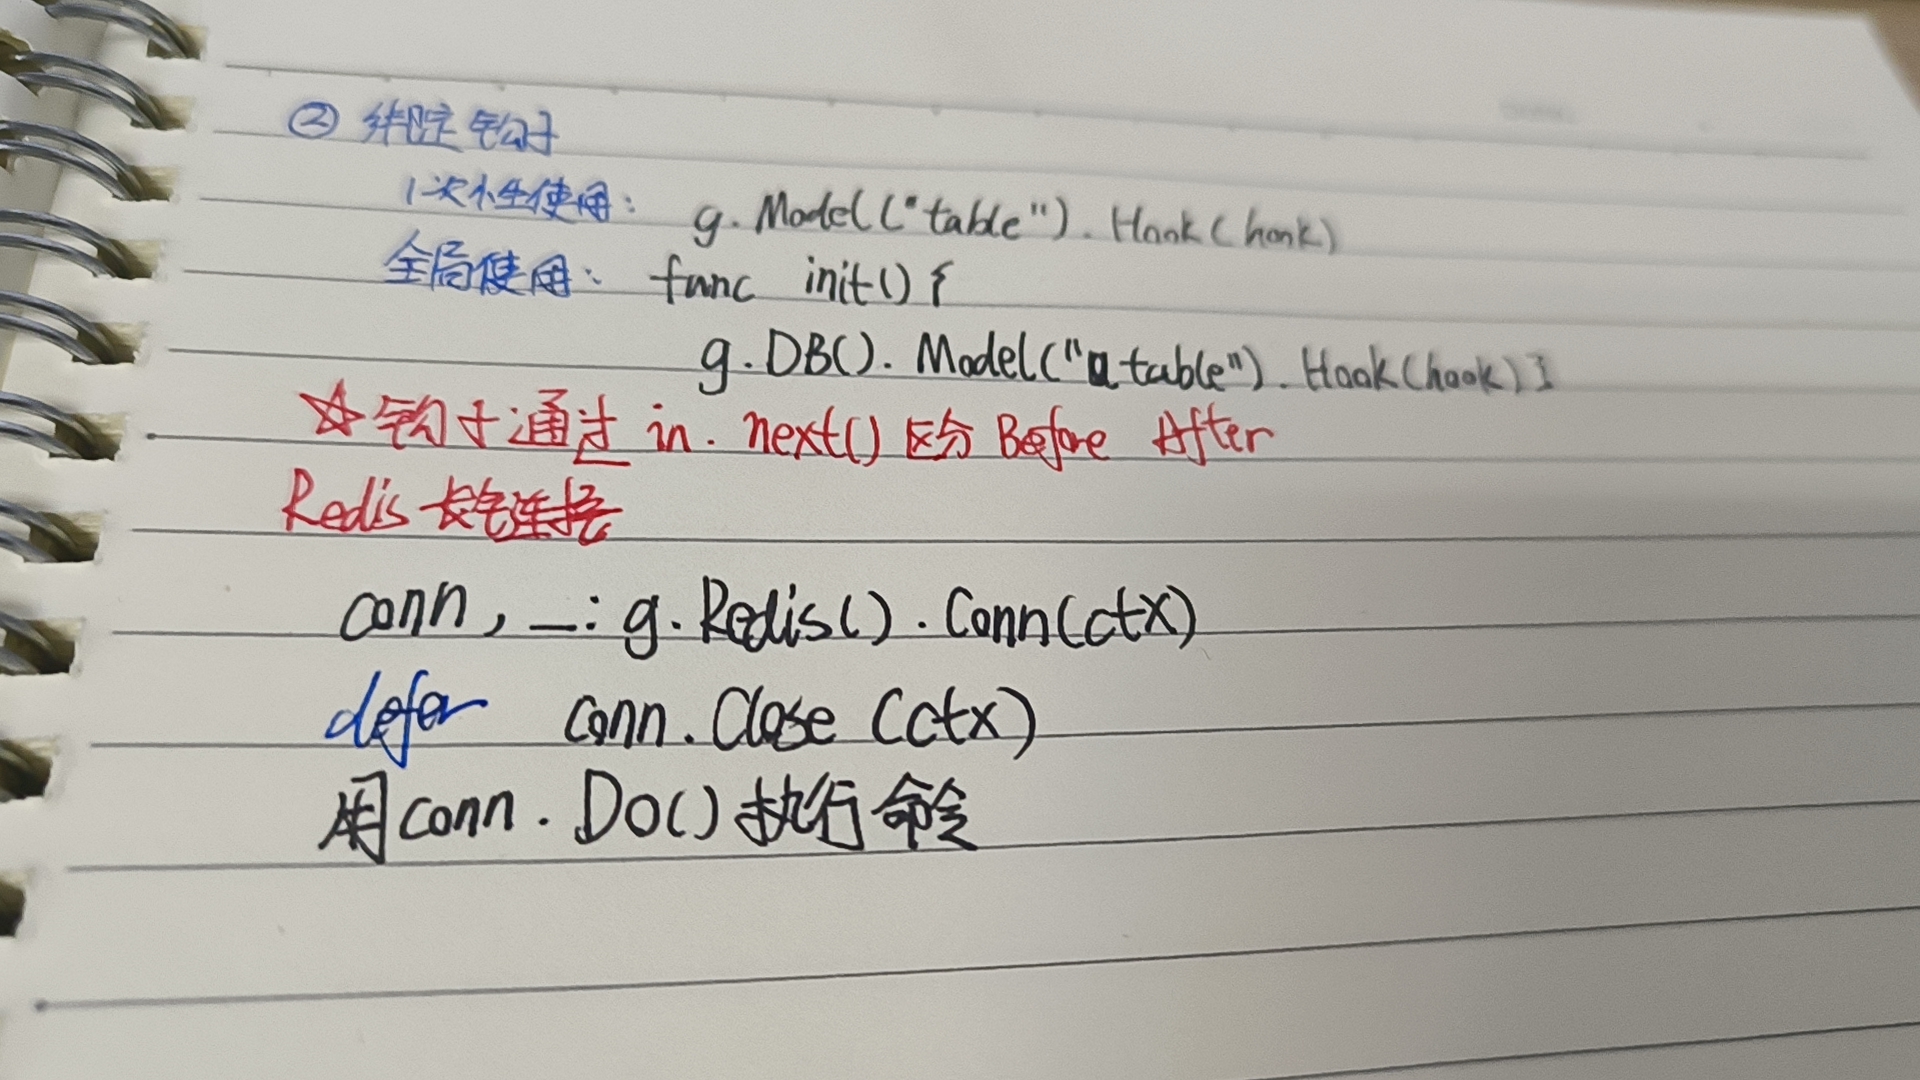 ② 绑定钩子
1次性使用: g.Model("table").Hook(hook)
全局使用: func init() {
g.DB().Model("a table").Hook(hook) }
☆钩子通过 in.next() 区分 Before After
Redis 长连接
conn, _: g.Redis().Conn(ctx)
defer conn.Close (ctx)
用conn.Do() 执行命令